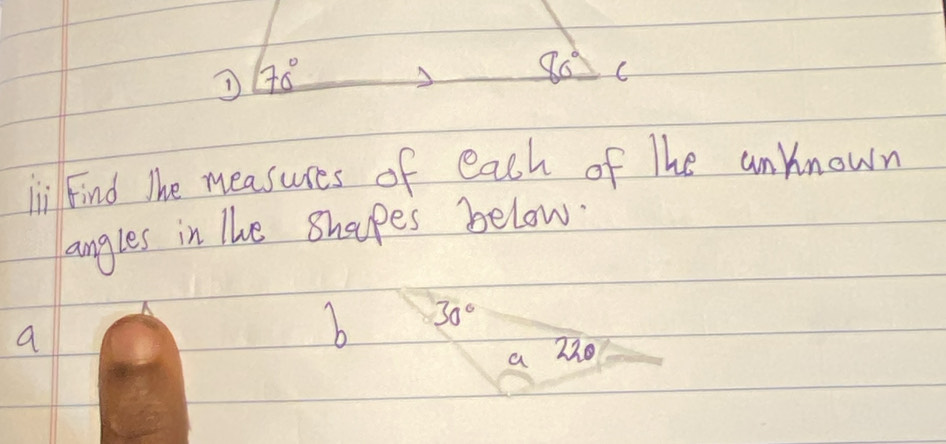 D 70° 80° C
iii Find the measures of each of the unknown
angles in the shapes below.
a b 30°
a 220